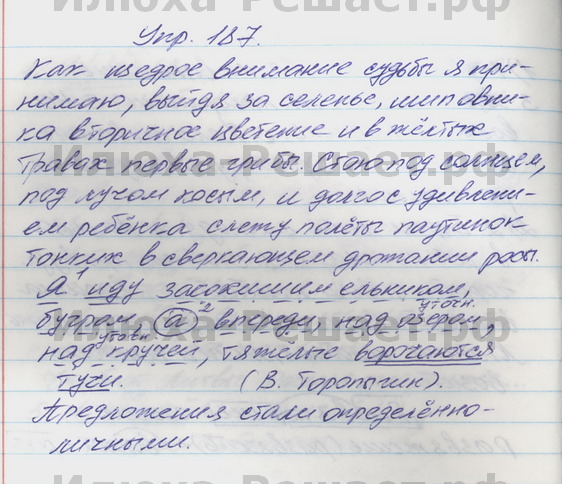 Илюха-Решает.рф
Упр. 187.
Как щедрое внимание судьбы я при-
нимаю, выйдя за селенье, шиповни-
ка вторичное цветение и в жёлтых
Илюха-Решает.рф
травах первые грибы. Стою под солнцем,
под лучом косым, и долго с удивлени-
ем ребёнка слежу полёты паутинок
тонких в сверкающем дрожании росы.
Я 1 иду засохшим ельником,
уточн.
бугром, а 2 впереди, над озером,
уточн.
над кручей, тяжёлые ворочаются
тучи. (В. Торопыгин).
Предложения стали определённо-
личными.
Илюха-Решает.рф